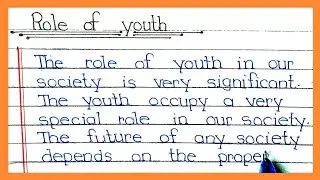 Role of youth
The role of youth in our
society is very significant.
The youth occupy a very
special role in our society.
The future of any society
depends on the prope